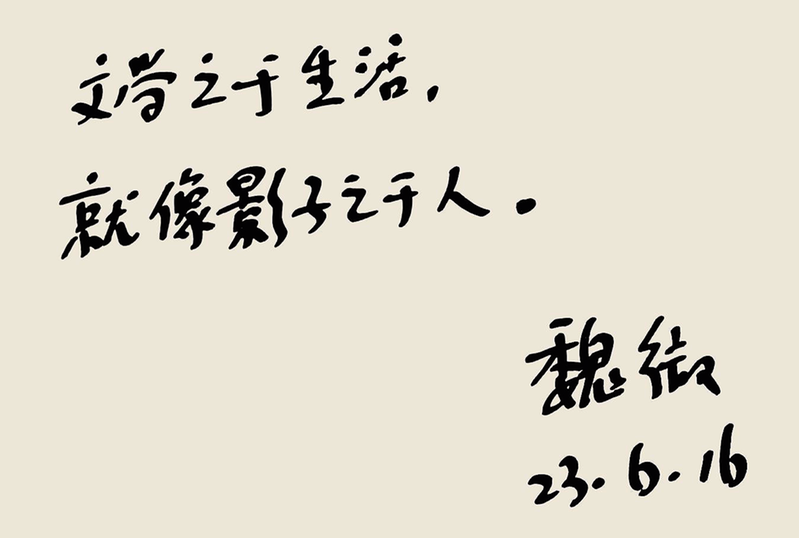 文学之于生活，
就像影子之于人。
魏微
23.6.16